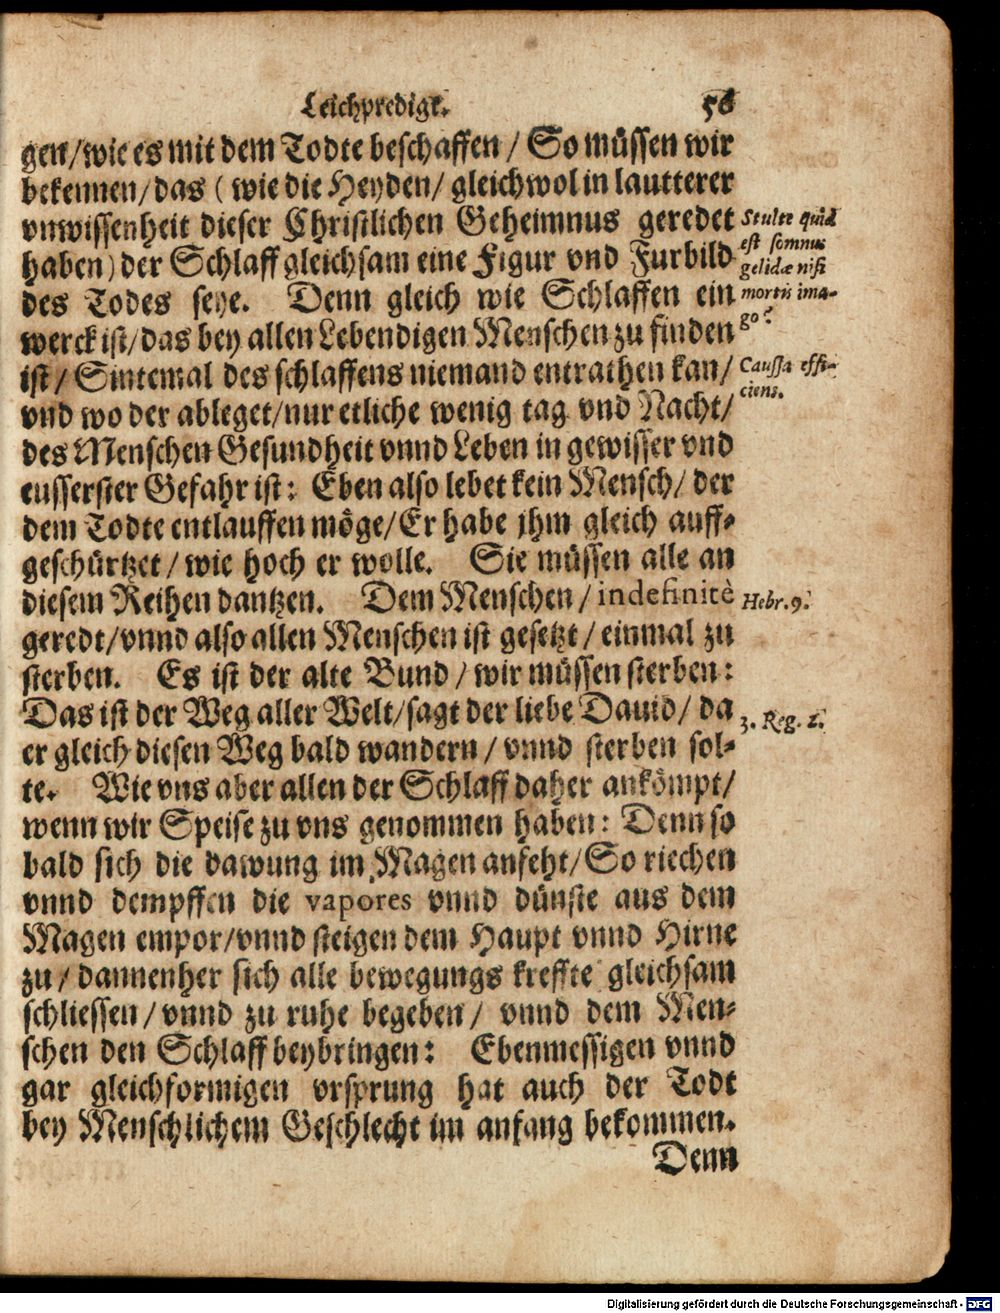 Leichpredigt. 56
gen/wie es mit dem Todte beschaffen / So müssen wir
bekennen/das ( wie die Heyden/ gleichwol in lautterer
vnwissenheit dieser Christlichen Geheimnus geredet
haben) der Schlaff gleichsam eine Figur vnd Furbild
des Todes seye. Denn gleich wie Schlaffen ein
werck ist/das bey allen Lebendigen Menschen zu finden
ist/ Sintemal des schlaffens niemand entrathen kan/
vnd wo der ableget/nur etliche wenig tag vnd Nacht/
des Menschen Gesundheit vnnd Leben in gewisser vnd
eusserster Gefahr ist: Eben also lebet kein Mensch/ der
dem Todte entlauffen möge/Er habe jhm gleich auff-
geschürtzet/wie hoch er wolle. Sie müssen alle an
diesem Reihen dantzen. Dem Menschen/indefinitè
geredt/vnnd also allen Menschen ist gesetzt/einmal zu
sterben. Es ist der alte Bund/wir müssen sterben:
Das ist der Weg aller Welt/sagt der liebe Dauid/ da
er gleich diesen Weg bald wandern/ vnnd sterben sol-
te. Wie vns aber allen der Schlaff daher ankömpt/
wenn wir Speise zu vns genommen haben: Denn so
bald sich die dawung im Magen anfeht/So riechen
vnnd dempffen die vapores vnnd dünste aus dem
Magen empor/vnnd steigen dem Haupt vnnd Hirne
zu/dannenher sich alle bewegungs kreffte gleichsam
schliessen/vnnd zu ruhe begeben/ vnnd dem Men-
schen den Schlaff beybringen: Ebenmessigen vnnd
gar gleichformigen vrsprung hat auch der Todt
bey Menschlichem Geschlecht im anfang bekommen.
Denn
Stulte quid
est somnus
gelidæ nisi
mortis ima-
go?
Caussa effi-
ciens.
Hebr. 9.
3. Reg. 2.
Digitalisierung gefördert durch die Deutsche Forschungsgemeinschaft - DFG